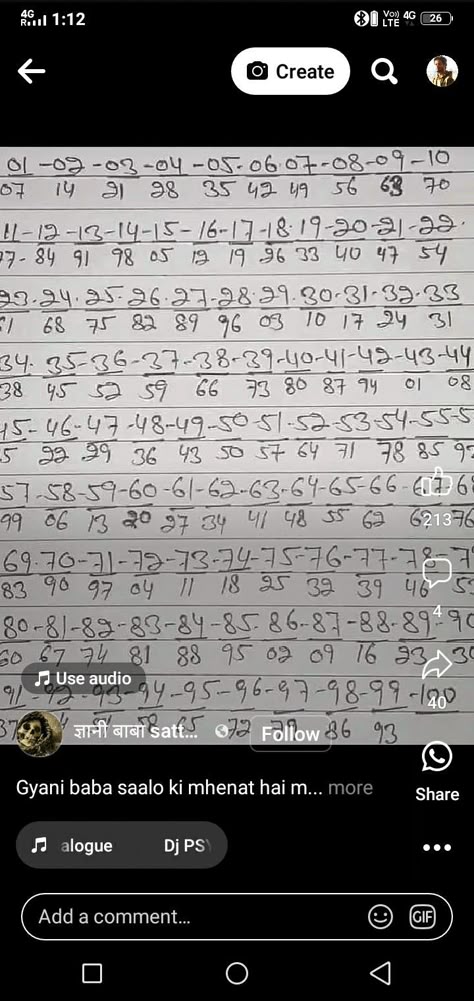 4G
R
1:12
Vo))
LTE
4G
26
Create
01-02-03-04-05-06-07-08-09-10
07 14 21 28 35 42 49 56 63 70
11-12-13-14-15-16-17-18-19-20-21-22
77-84 91 98 05 12 19 26 33 40 47 54
23-24-25-26-27-28-29-30-31-32-33
61 68 75 82 89 96 03 10 17 24 31
34-35-36-37-38-39-40-41-42-43-44
38 45 52 59 66 73 80 87 94 01 08
45-46-47-48-49-50-51-52-53-54-55-5
5 22 29 36 43 50 57 64 71 78 85 92
57-58-59-60-61-62-63-64-65-66-67 68
99 06 13 20 27 34 41 48 55 62 76
213
69-70-71-72-73-74-75-76-77-78-7
83 90 97 04 11 18 25 32 39 46 5
4
80-81-82-83-84-85-86-87-88-89-90
60 67 74 81 88 95 02 09 16 23 30
Use audio
40
91-92-93-94-95-96-97-98-99-100
37 58 65 72 79 86 93
ज्ञानी बाबा satt...
Follow
Gyani baba saalo ki mhenat hai m... more
Share
alogue Dj PSY
Add a comment...
GIF